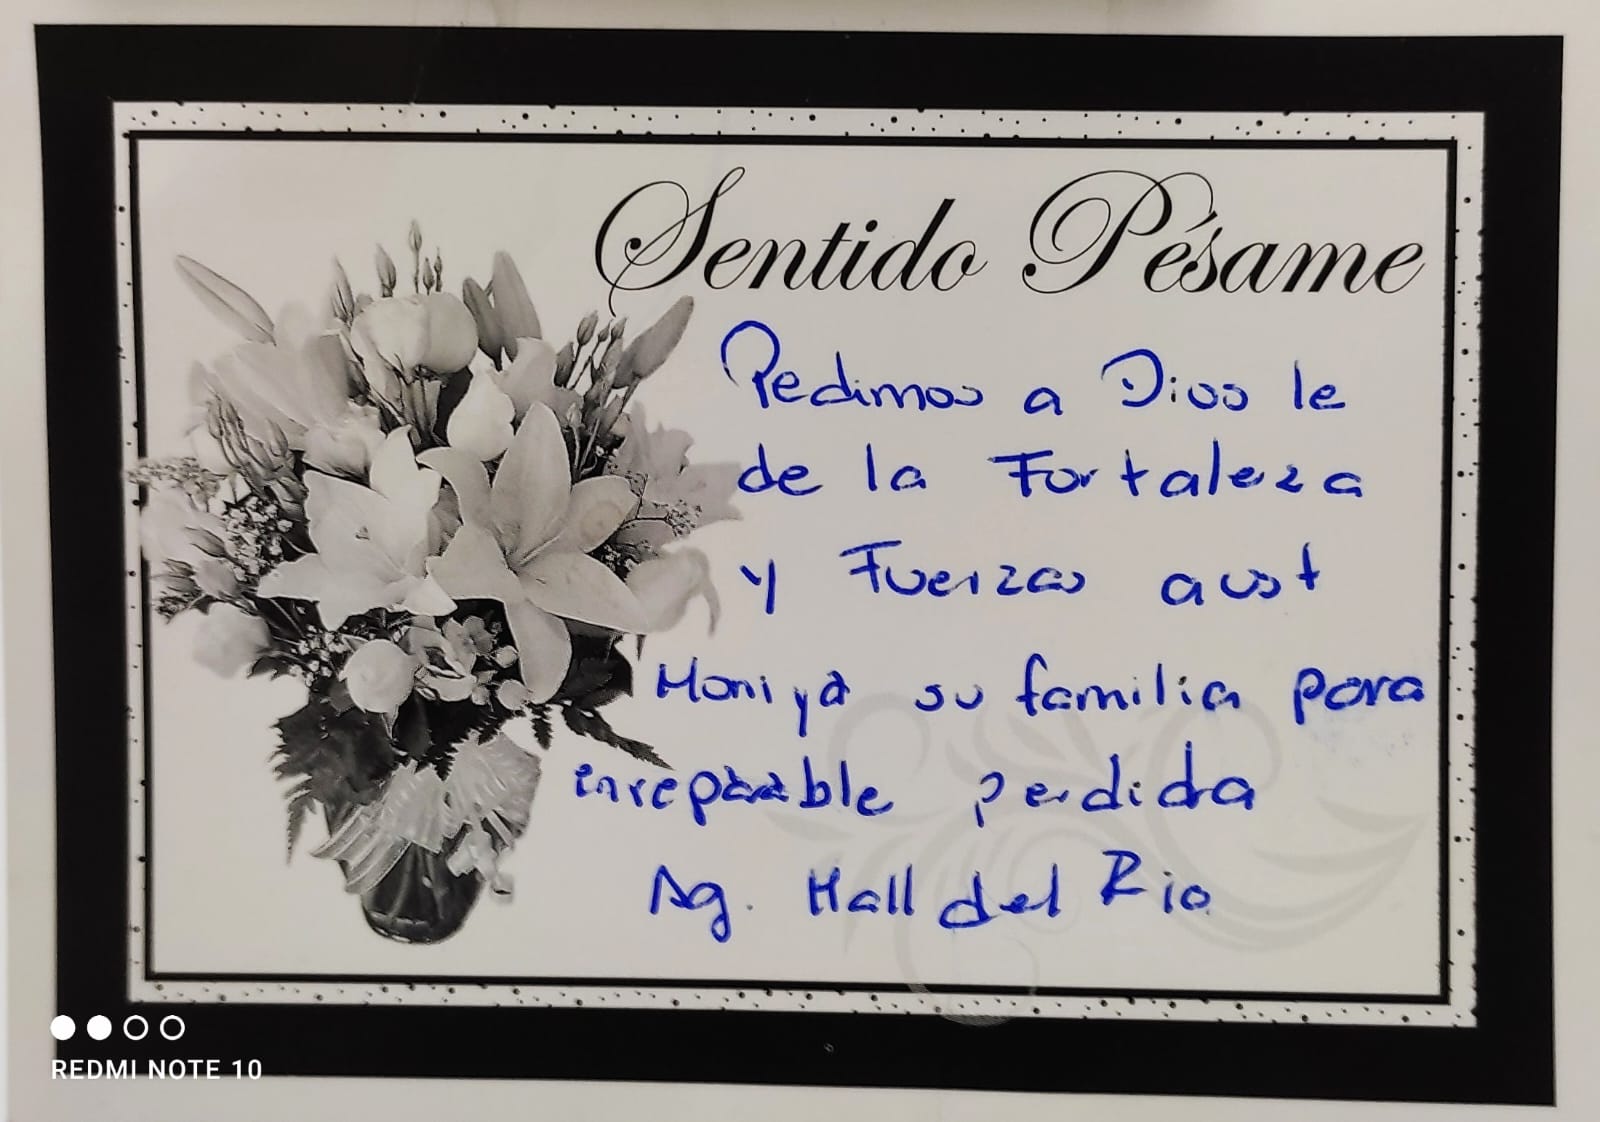 Sentido Pésame
Pedimos a Dios le
de la Fortaleza
y Fuerzas a ust
Moni y a su familia para
inreparable perdida
Ag. Mall del Rio
REDMI NOTE 10